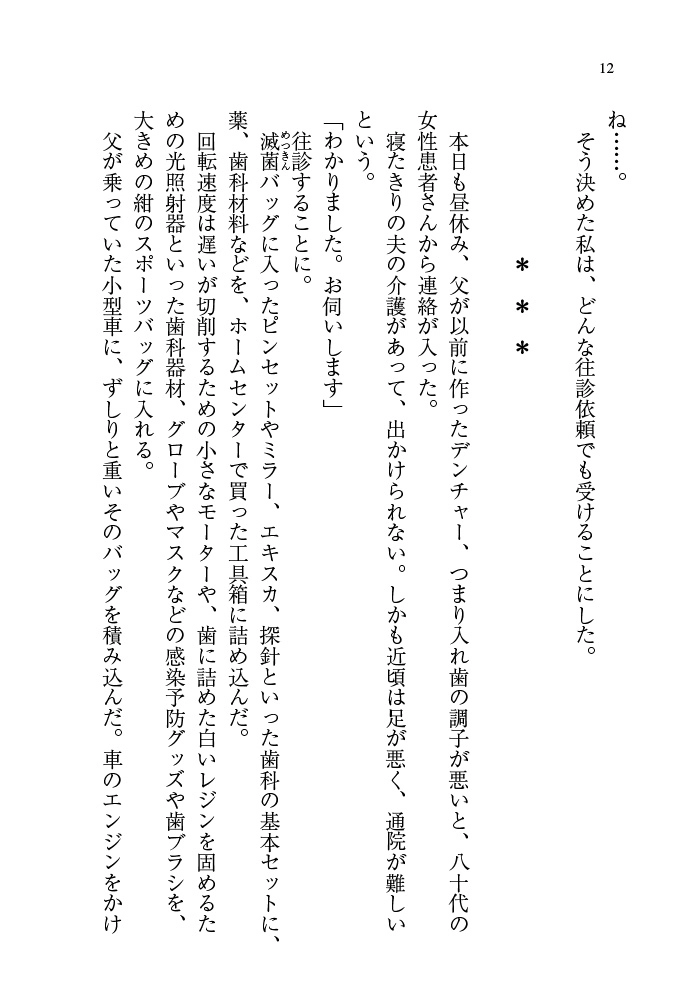 12
ね……。
そう決めた私は、どんな往診依頼でも受けることにした。
＊　＊　＊
本日も昼休み、父が以前に作ったデンチャー、つまり入れ歯の調子が悪いと、八十代の
女性患者さんから連絡が入った。
寝たきりの夫の介護があって、出かけられない。しかも近頃は足が悪く、通院が難しい
という。
「わかりました。お伺いします」
往診することに。
滅菌バッグに入ったピンセットやミラー、エキスカ、探針といった歯科の基本セットに、
めっきん
薬、歯科材料などを、ホームセンターで買った工具箱に詰め込んだ。
回転速度は遅いが切削するための小さなモーターや、歯に詰めた白いレジンを固めるた
めの光照射器といった歯科器材、グローブやマスクなどの感染予防グッズや歯ブラシを、
大きめの紺のスポーツバッグに入れる。
父が乗っていた小型車に、ずしりと重いそのバッグを積み込んだ。車のエンジンをかけ